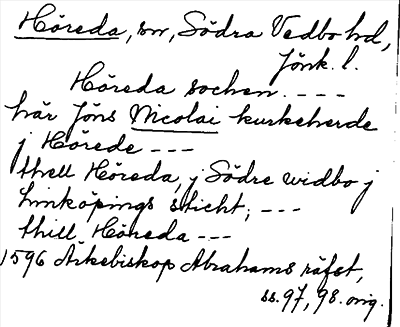 Höreda, sn, Södra Vedbo hd,
Jönk. l.
Höreda sochen. - - -
här Jöns Nicolai kurkeherde
j Hörede - - -
thell Höreda, j Södre widbo j
Linköpings sticht; - - -
thill Höreda - - -
1596 Ärkebiskop Abrahams räfst,
ss. 97, 98. orig.